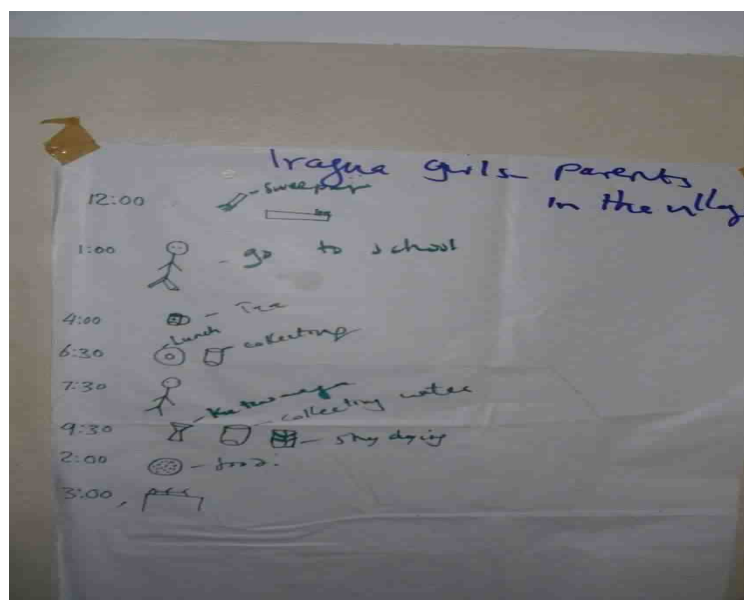 Iragua girls- parents
in the
12:00 - sweeper
1:00 - go to school
4:00 - Tea
Lunch
6:30 - collecting
7:30
- collecting water
9:30 - stuydying
2:00 - food:
3:00,